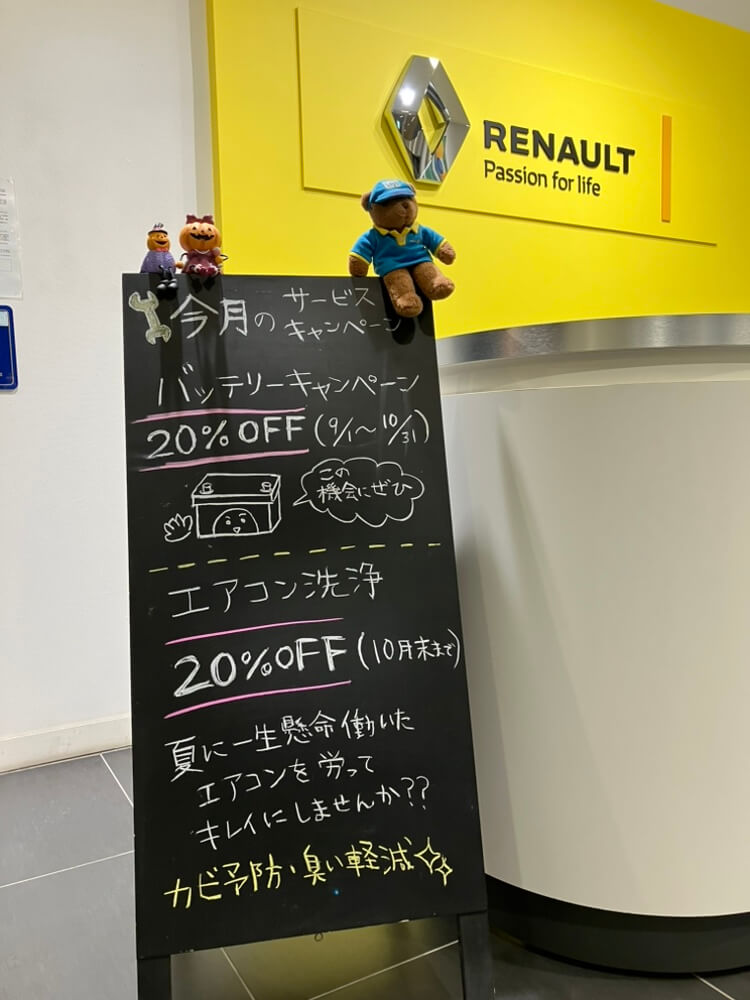 RENAULT
Passion for life
今月の サービス
キャンペーン
バッテリーキャンペーン
20%OFF (9/1～10/31)
この
機会にぜひ
エアコン洗浄
20%OFF (10月末まで)
夏に一生懸命働いた
エアコンを労って
キレイにしませんか??
カビ予防・臭い軽減